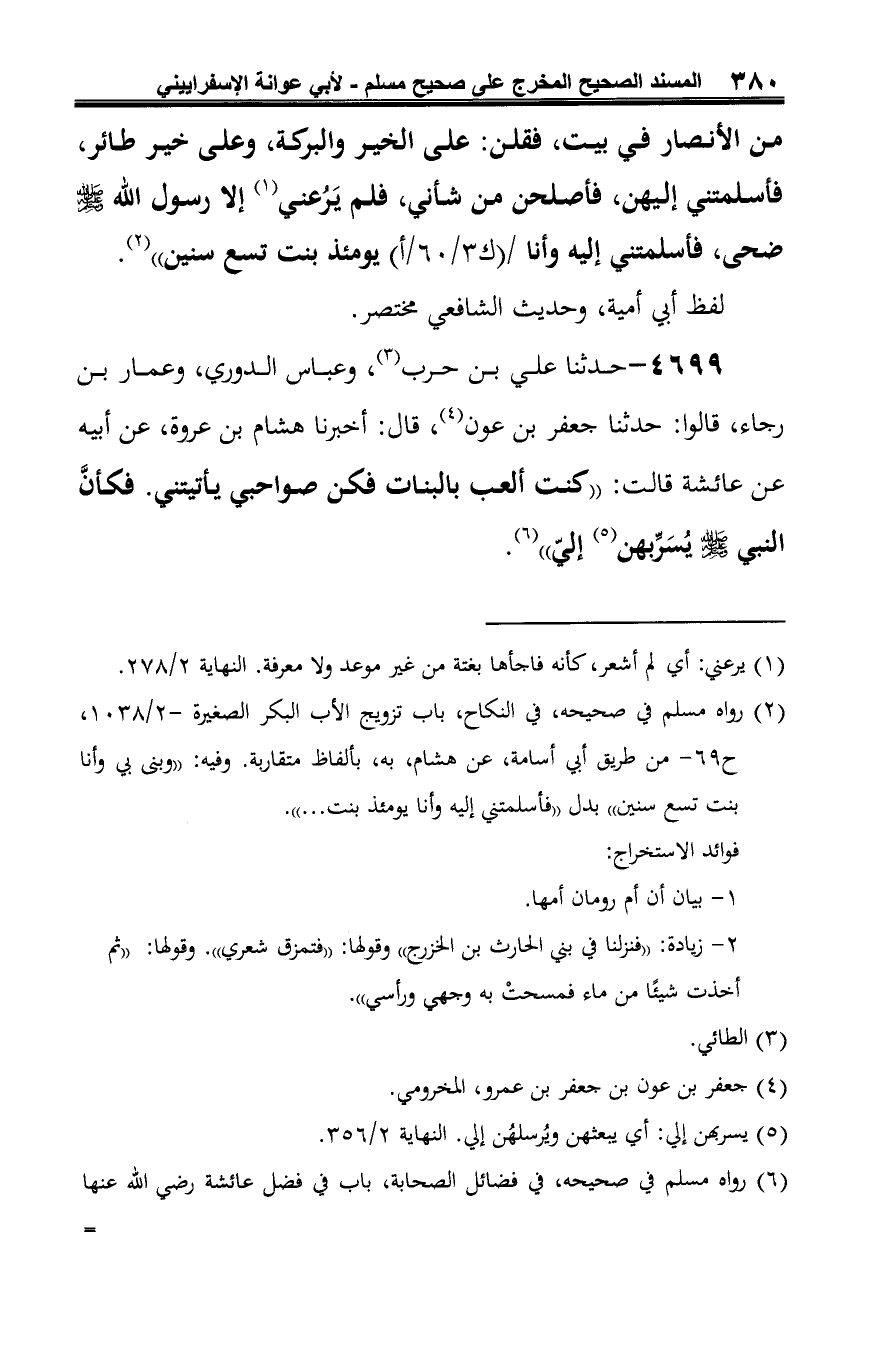 ٣٨٠ المسند الصحيح المخرج على صحيح مسلم - لأبي عوانة الإسفراييني
من الأنصار في بيت، فقلن: على الخير والبركة، وعلى خير طائر،
فأسلمتني إليهن، فأصلحن من شأني، فلم يَرُعني(١) إلا رسول الله ﷺ
ضحى، فأسلمتني إليه وأنا /(ك٦٠/٣/أ) يومئذ بنت تسع سنين))(٢).
لفظ أبي أمية، وحديث الشافعي مختصر.
٤٦٩٩-حدثنا علي بن حرب(٣)، وعباس الدوري، وعمار بن
رجاء، قالوا: حدثنا جعفر بن عون(٤)، قال: أخبرنا هشام بن عروة، عن أبيه
عن عائشة قالت: ((كنت ألعب بالبنات فكن صواحبي يأتيتني. فكأنَّ
النبي ﷺ يُسَرِّبهن(٥) إليّ))(٦).
(١) يرعني: أي لم أشعر، كأنه فاجأها بغتة من غير موعد ولا معرفة. النهاية ٢٧٨/٢.
(٢) رواه مسلم في صحيحه، في النكاح، باب تزويج الأب البكر الصغيرة -١٠٣٨/٢،
ح٦٩- من طريق أبي أسامة، عن هشام، به، بألفاظ متقاربة. وفيه: ((وبنى بي وأنا
بنت تسع سنين)) بدل ((فأسلمتني إليه وأنا يومئذ بنت...)).
فوائد الاستخراج:
١- بيان أن أم رومان أمها.
٢- زيادة: ((فنزلنا في بني الحارث بن الخزرج)) وقولها: ((فتمزق شعري)). وقولها: ((ثم
أخذت شيئًا من ماء فمسحتْ به وجهي ورأسي)).
(٣) الطائي.
(٤) جعفر بن عون بن جعفر بن عمرو، المخرومي.
(٥) يسربهن إلي: أي يبعثهن ويُرسلهُن إلي. النهاية ٣٥٦/٢.
(٦) رواه مسلم في صحيحه، في فضائل الصحابة، باب في فضل عائشة رضي الله عنها
=